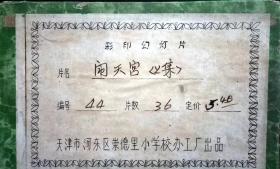 彩印幻灯片
片名 闹天宫<2集>
编号 44 片数 36 定价 5.40
天津市河东区崇德里小学校办工厂出品